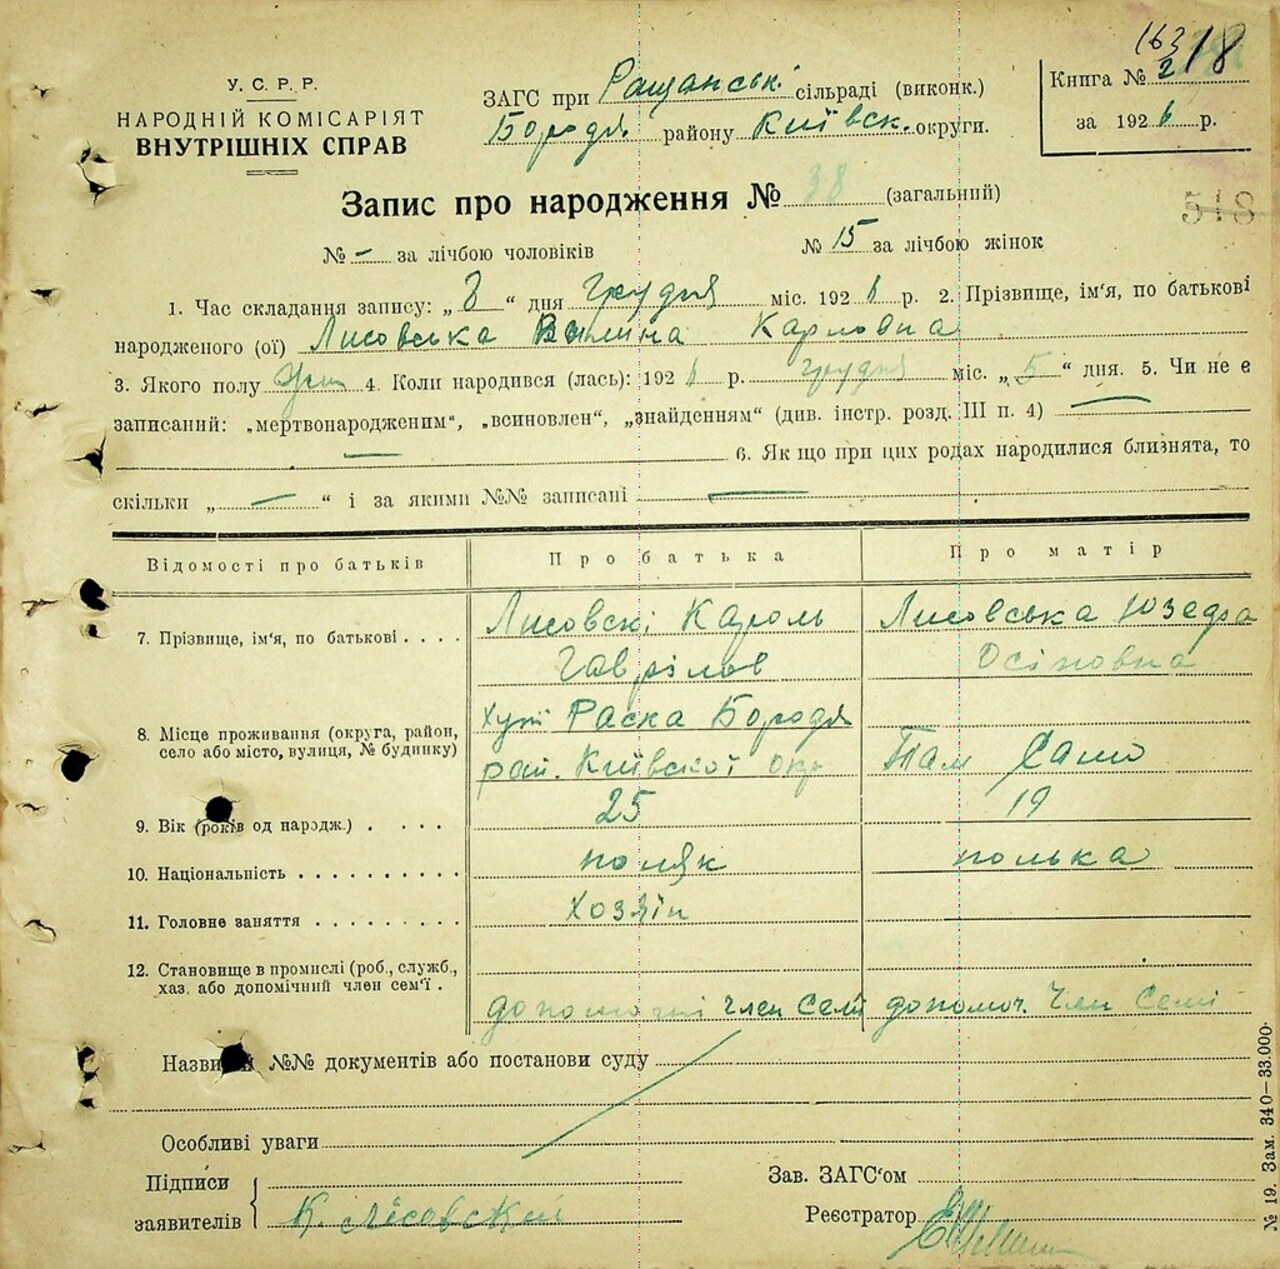 163 18
У. С. Р. Р.
НАРОДНІЙ КОМІСАРІЯТ
ВНУТРІШНІХ СПРАВ
ЗАГС при Ращанські сільраді (виконк.)
Бородя. району Київськ. округи.
Книга № 2
за 1926 р.
Запис про народження № 38 (загальний)
518
№ – за лічбою чоловіків № 15 за лічбою жінок
1. Час складання запису: „ 8 “ дня Грудня міс. 1926 р. 2. Прізвище, ім'я, по батькові
народженого (ої) Лисовська Карловна
3. Якого полу Жін 4. Коли народився (лась): 1926 р. грудня міс. „ 5 “ дня. 5. Чи не є
записаний: „мертвонародженим“, „всиновлен“, „знайденням“ (див. інстр. розд. III п. 4) —
— 6. Якщо при цих родах народилися близнята, то
скільки „ — “ і за якими №№ записані —
Відомості про батьків Про батька Про матір
7. Прізвище, ім'я, по батькові . . . . Лисовскі Кароль Лисовська Юзефа
Гаврілов Осіповна
8. Місце проживання (округа, район, село або місто, вулиця, № будинку) хут Раска Бородя
рай. Київскої окр Там Само
9. Вік (років од народж.) . . . . 25 19
10. Національність . . . . . . . . . . поляк полька
11. Головне заняття . . . . . . . . . Хозяін
12. Становище в промислі (роб., служб.,
хаз. або допомічний член сем'ї . допомочні член Семі допомоч. Член Семі
Назви й №№ документів або постанови суду
Особливі уваги
Підписи
заявителів К. Лісовский
Зав. ЗАГС'ом
Реєстратор
№ 19. Зам. 340—33.000.